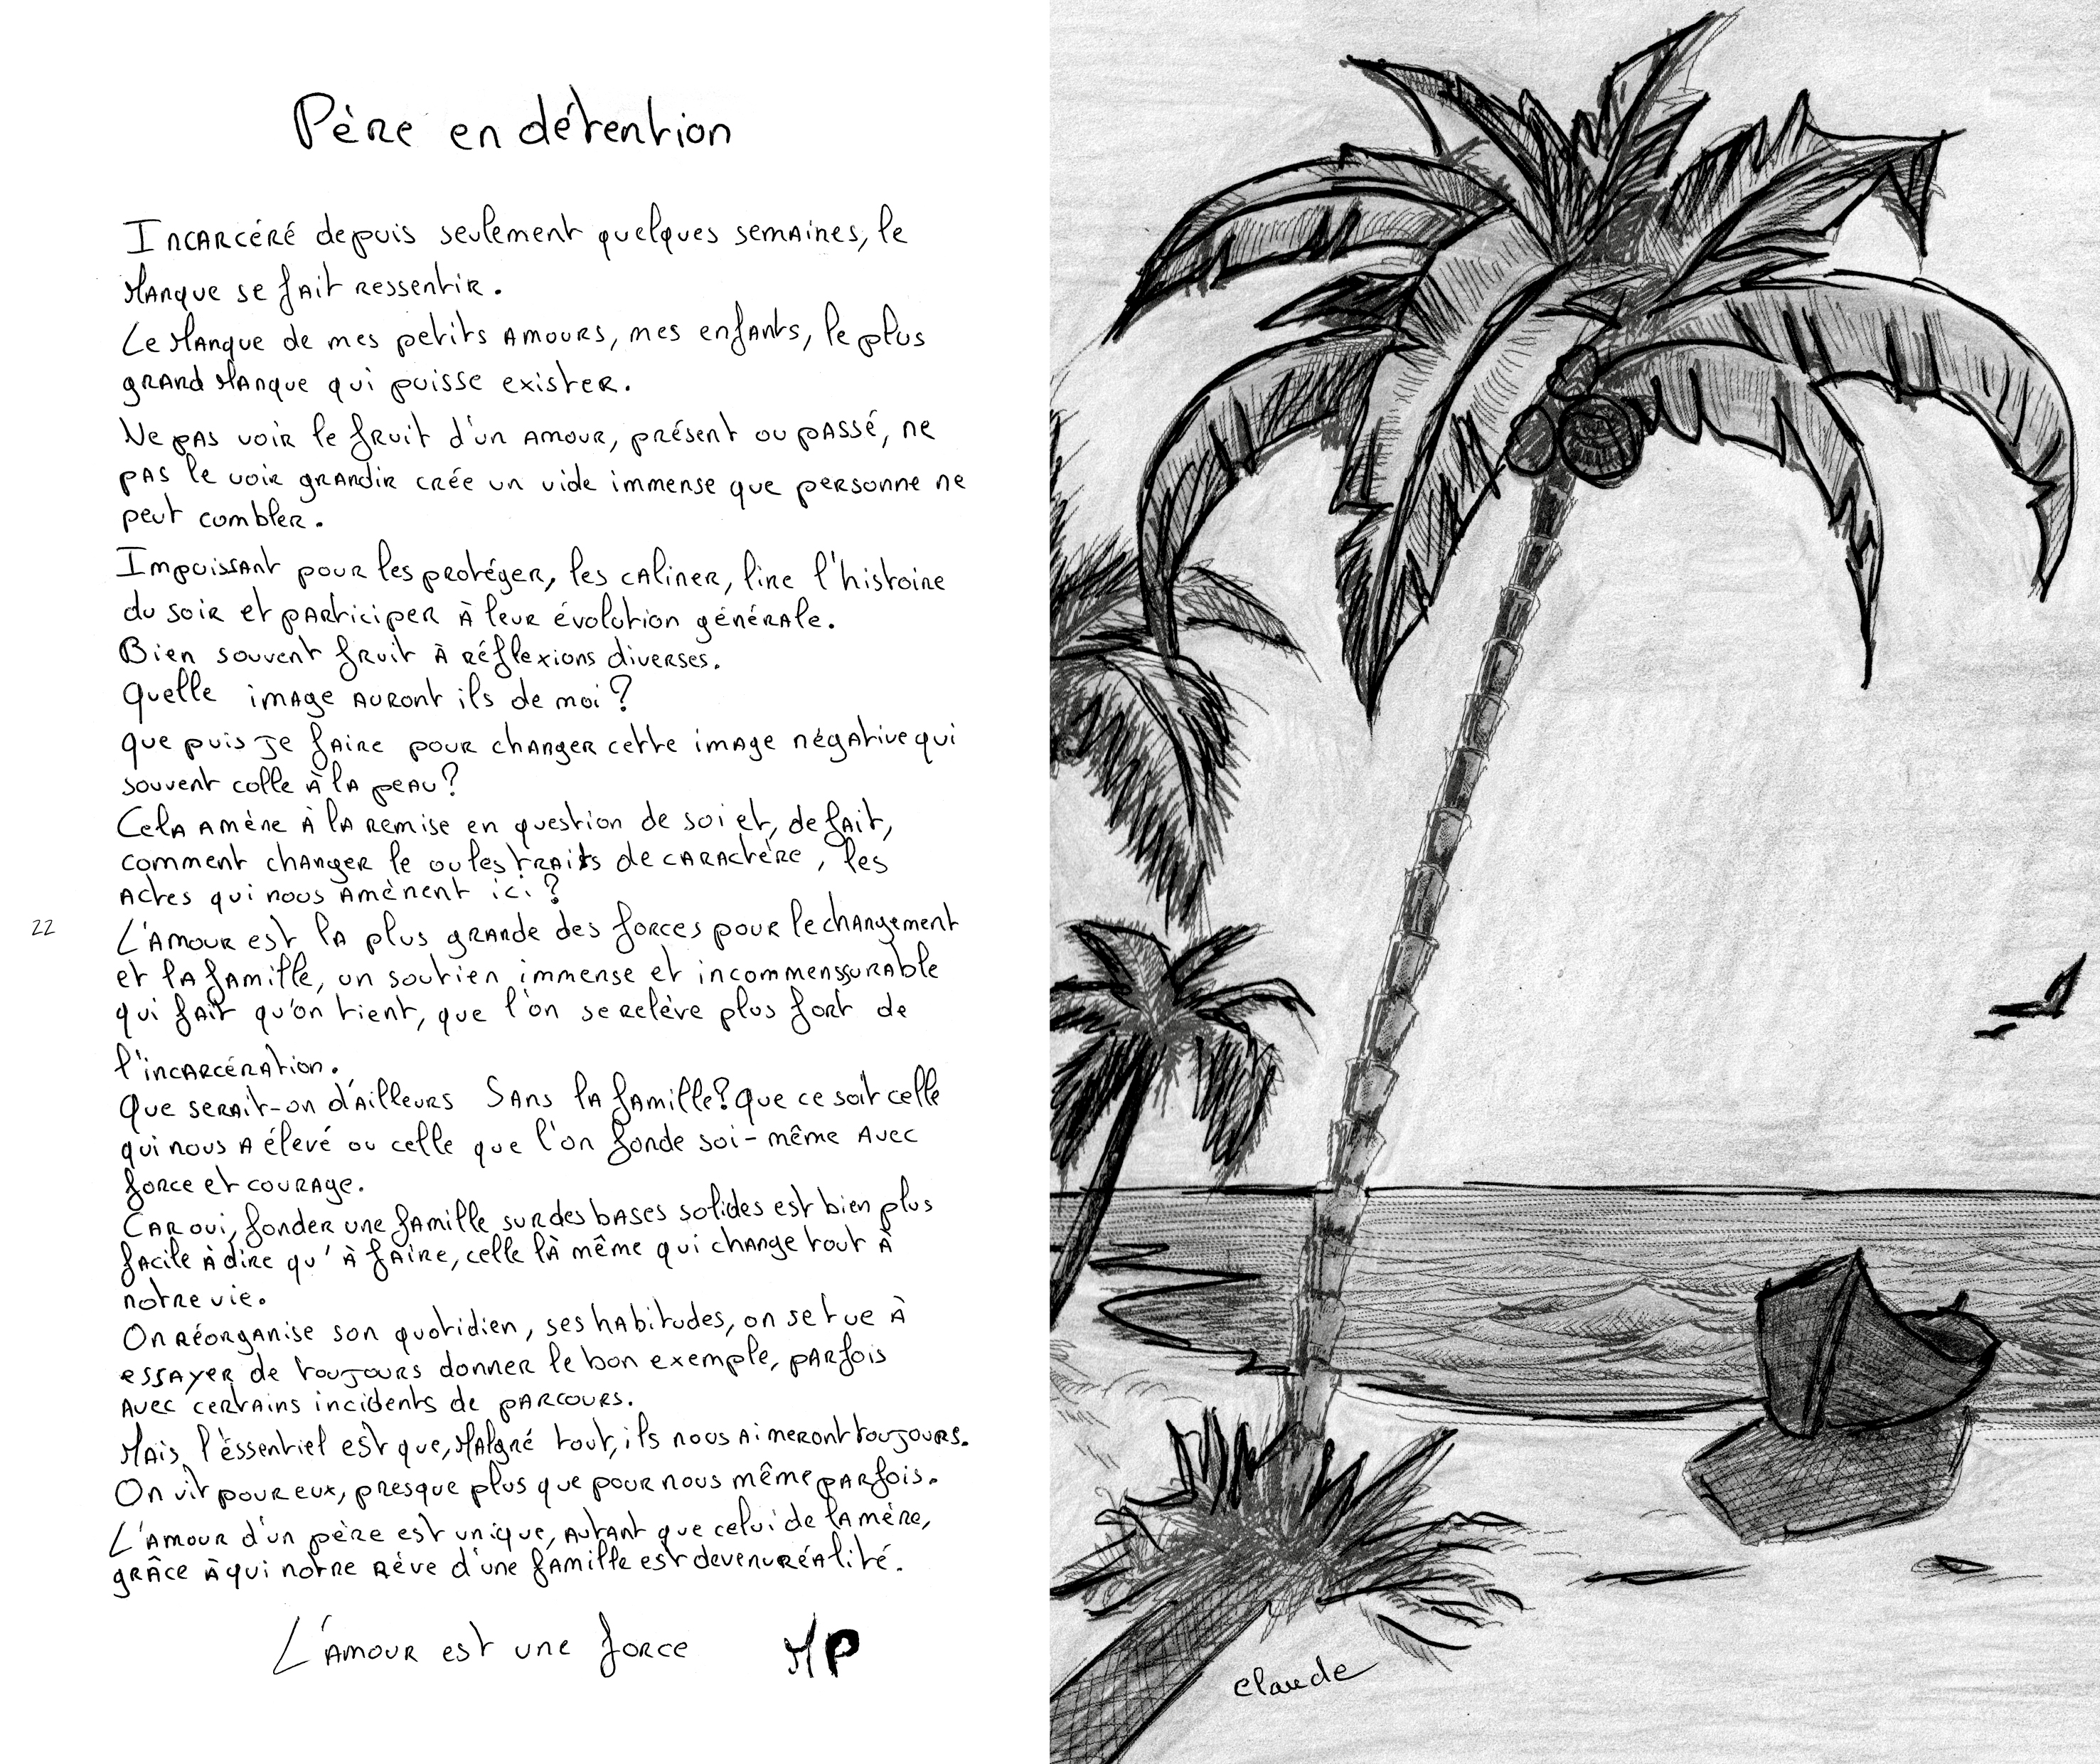 Père en détention
Incarcéré depuis seulement quelques semaines, le
Manque se fait ressentir.
Le Manque de mes petits amours, mes enfants, le plus
grand Manque qui puisse exister.
Ne pas voir le fruit d'un amour, présent ou passé, ne
pas le voir grandir crée un vide immense que personne ne
peut combler.
Impuissant pour les protéger, les caliner, lire l'histoire
du soir et participer à leur évolution générale.
Bien souvent fruit à réflexions diverses.
Quelle image auront ils de moi ?
que puis je faire pour changer cette image négative qui
souvent colle à la peau ?
Cela amène à la remise en question de soi et, de fait,
comment changer le ou les traits de caractère, les
actes qui nous amènent ici ?
22
L'amour est la plus grande des forces pour le changement
et la famille, un soutien immense et incommenssurable
qui fait qu'on tient, que l'on se relève plus fort de
l'incarcération.
Que serait-on d'ailleurs sans la famille ? Que ce soit celle
qui nous a élevé ou celle que l'on fonde soi-même avec
force et courage.
Car oui, fonder une famille sur des bases solides est bien plus
facile à dire qu'à faire, celle là même qui change tout à
notre vie.
On réorganise son quotidien, ses habitudes, on se tue à
essayer de toujours donner le bon exemple, parfois
avec certains incidents de parcours.
Mais, l'éssentiel est que, Malgré tout, ils nous aimeront toujours.
On vit pour eux, presque plus que pour nous même parfois.
L'amour d'un père est unique, autant que celui de la mère,
grâce à qui notre rêve d'une famille est devenu réalité.
L'amour est une force MP
Claude